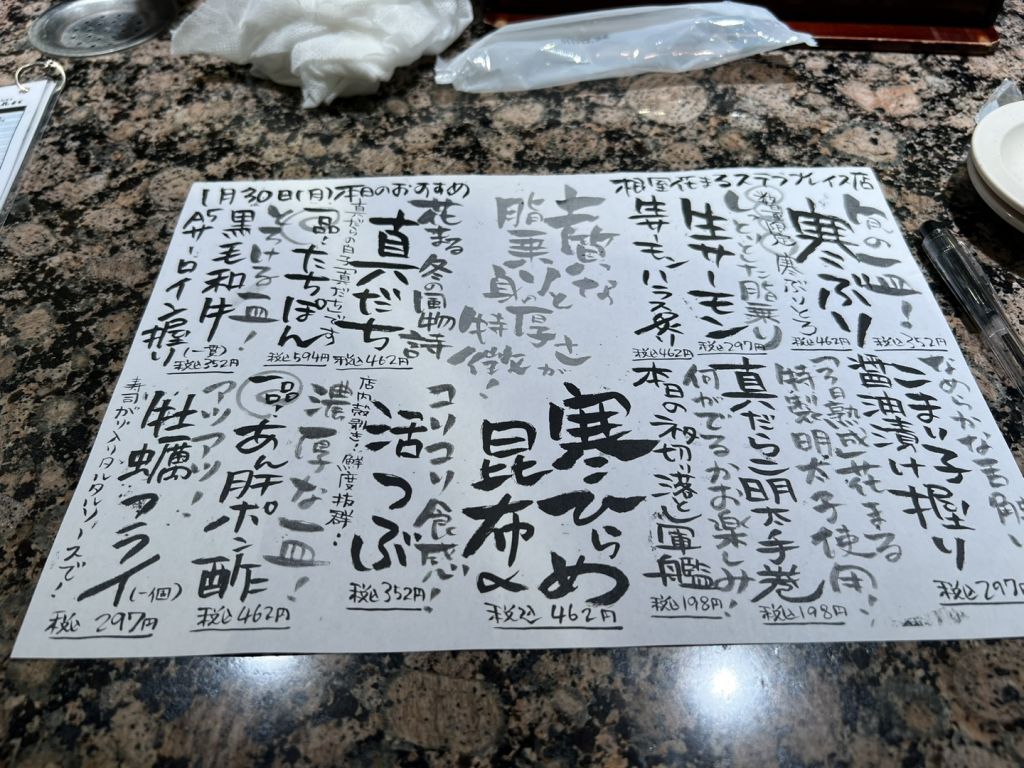 1月30日(月)本日のおすすめ
根室花まるステラプレイス店
旬の一皿!
寒ぶり
税込352円
寒ぶりとろ
税込462円
しっとりとした脂乗り
生サーモン
税込297円
生サーモンハラス炙り
税込462円
上質な
脂乗りと
身の厚さが
特徴!
花まる冬の風物詩
真だち
税込462円
真だらの白子「真だち」です
一品!たちぽん
税込594円
とろける一皿!
黒毛和牛
A5サーロイン握り
(一貫)
税込352円
なめらかな舌触り
こまい子握り
醤油漬け
税込297円
特製明太子使用!
真だらこ明太手巻
税込198円
何がでるかお楽しみ!
本日のネタ切り落とし軍艦
税込198円
寒ひらめ
昆布〆
税込462円
コリコリ食感!
活つぶ
税込352円
店内殻剥き!鮮度抜群
濃厚な一皿!
一品!あん肝ポン酢
税込462円
アツアツ!
牡蠣フライ(一個)
税込297円
寿司がり入りタルタルソースで!